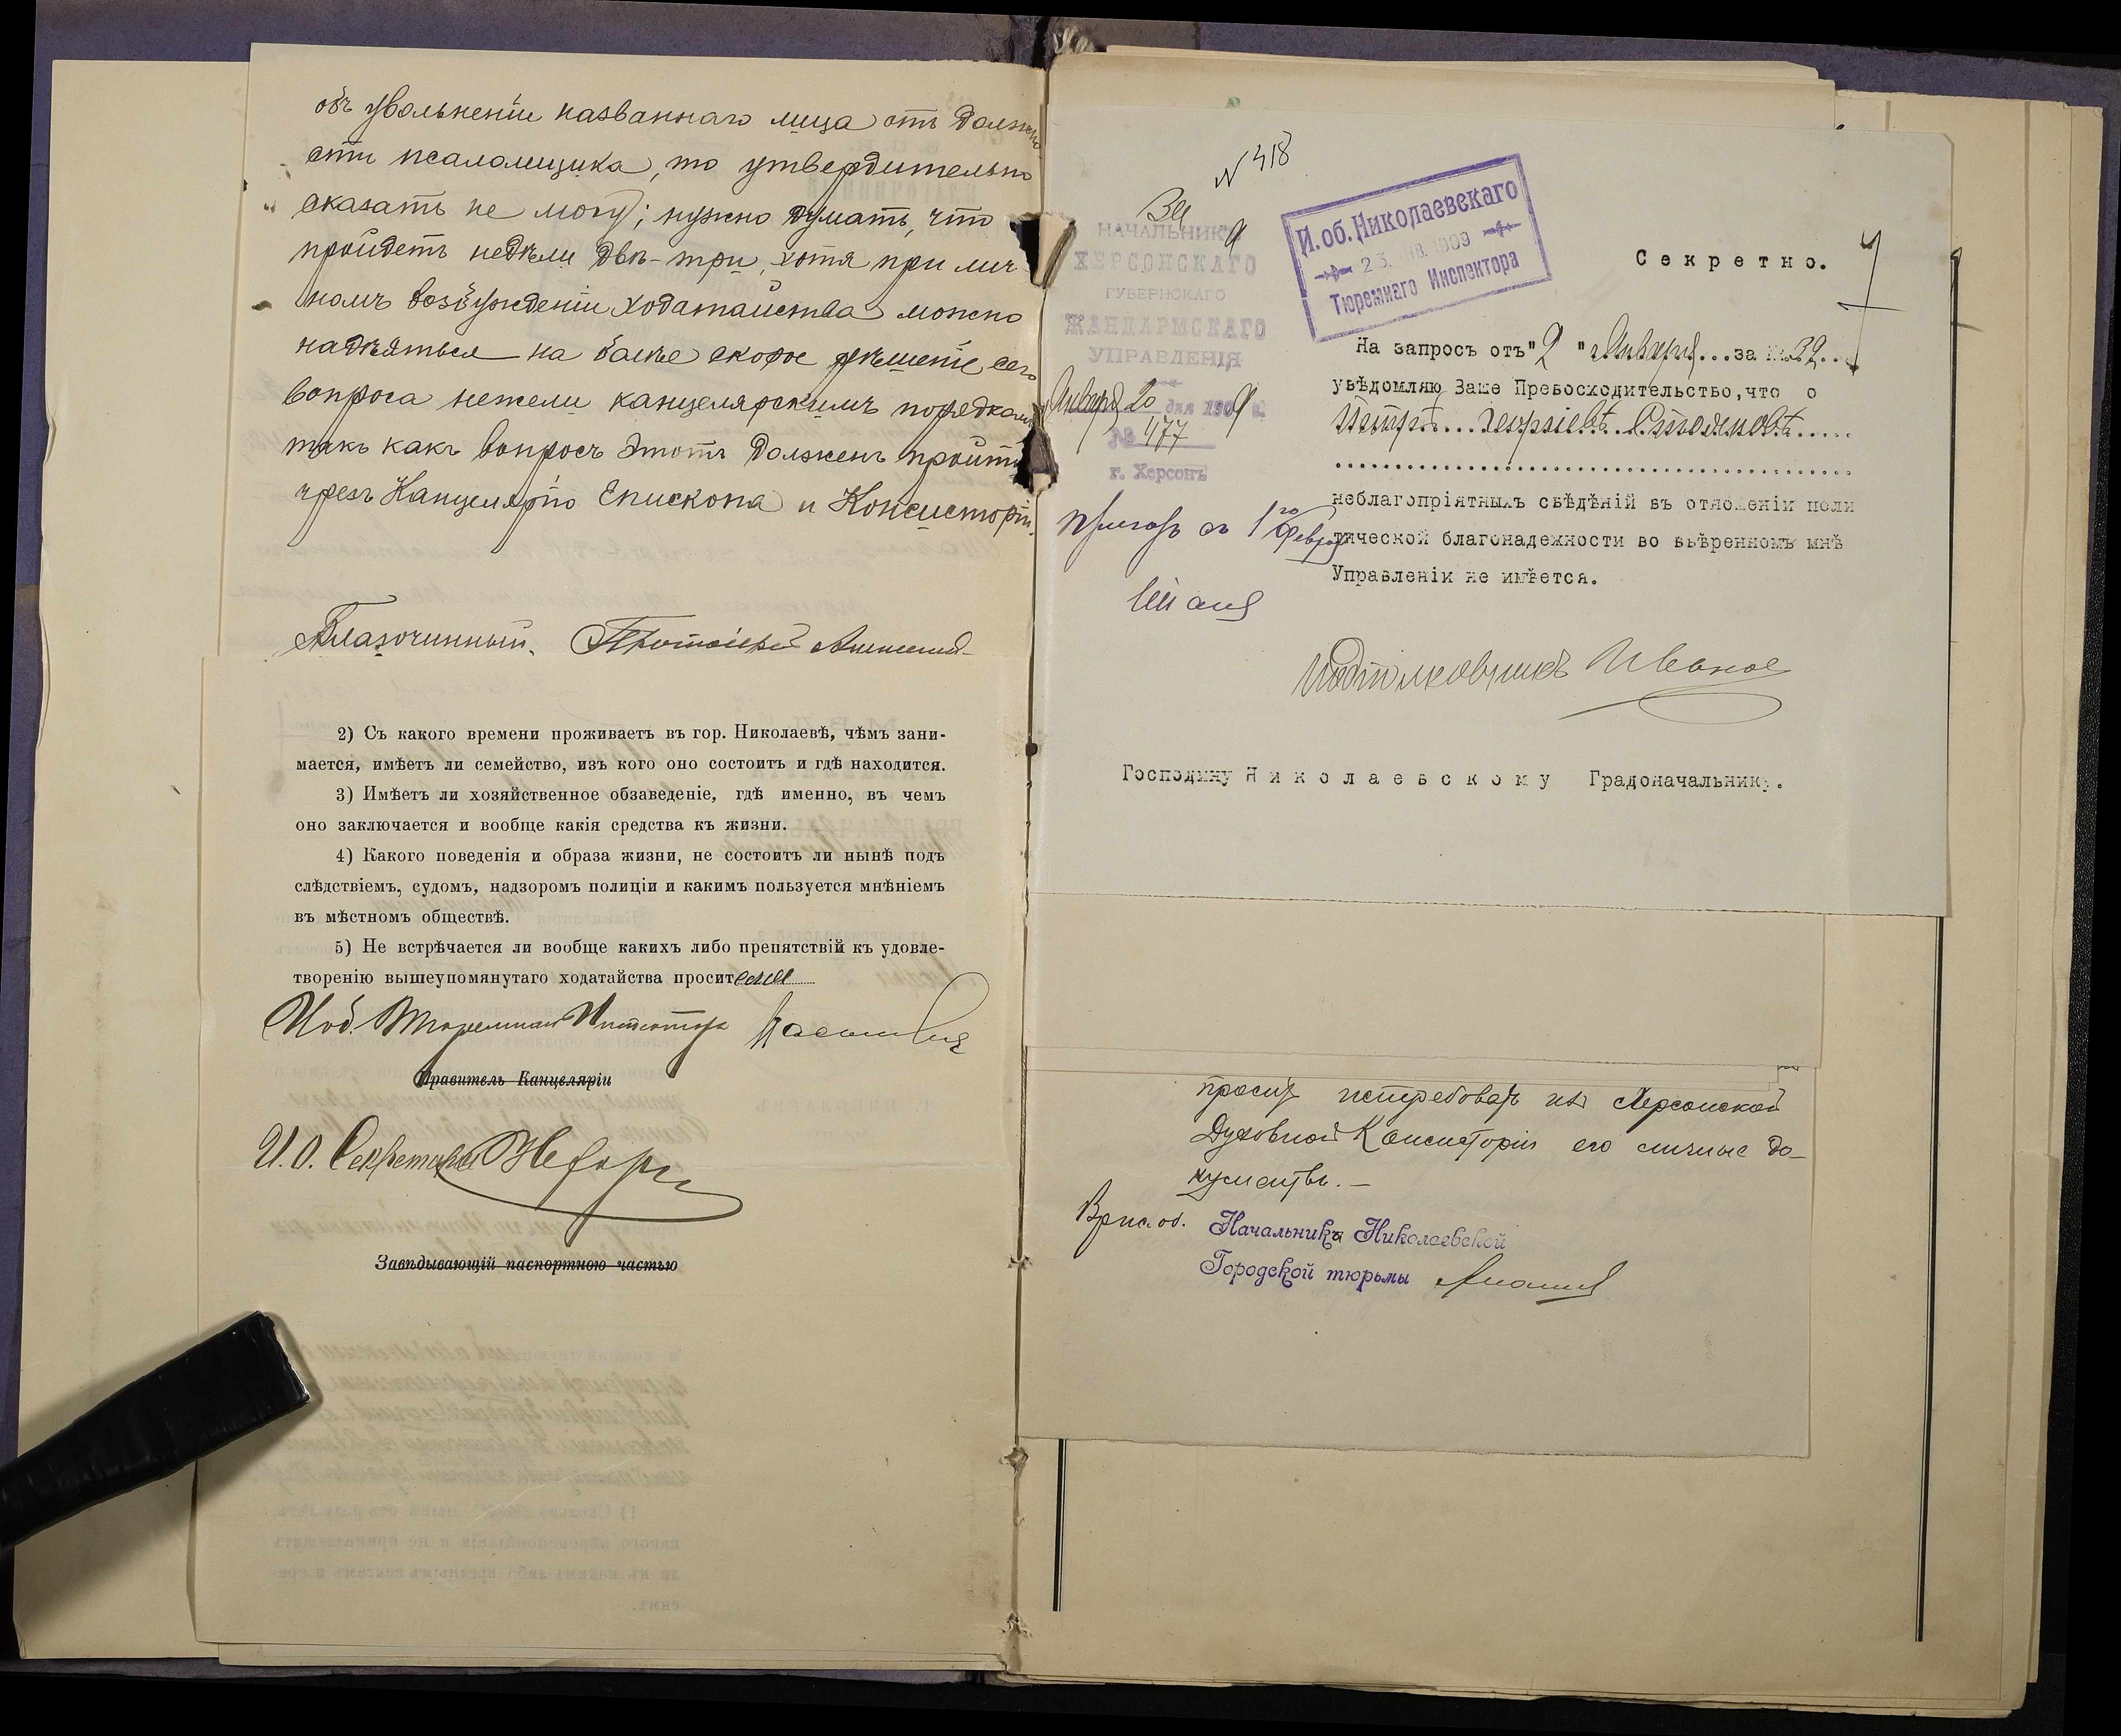 объ увольненіи названнаго лица отъ должно-
сти псаломщика, то утвердительно
сказать не могу; нужно думать, что
пройдетъ недѣли двѣ-три, хотя при лич-
номъ возбужденіи ходатайства можно
надѣяться на болѣе скорое рѣшеніе сего
вопроса нежели канцелярскимъ порядкомъ
такъ какъ вопросъ этотъ долженъ пройти
чрезъ Канцелярію Епископа и Консисторію.
Благочинный, Протоіерей
2) Съ какого времени проживаетъ въ гор. Николаевѣ, чѣмъ зани-
мается, имѣетъ ли семейство, изъ кого оно состоитъ и гдѣ находится.
3) Имѣетъ ли хозяйственное обзаведеніе, гдѣ именно, въ чемъ
оно заключается и вообще какія средства къ жизни.
4) Какого поведенія и образа жизни, не состоитъ ли нынѣ подъ
слѣдствіемъ, судомъ, надзоромъ полиціи и какимъ пользуется мнѣніемъ
въ мѣстномъ обществѣ.
5) Не встрѣчается ли вообще какихъ либо препятствій къ удовле-
творенію вышеупомянутаго ходатайства просителя
И об. Тюремнаго Инспектора
Правитель Канцеляріи
И. О. Секретаря
Завѣдывающій паспортною частью
N 418
НАЧАЛЬНИКЪ
ХЕРСОНСКАГО
ГУБЕРНСКАГО
ЖАНДАРМСКАГО
УПРАВЛЕНІЯ
Января 20 дня 1909 г.
№ 477
г. Херсонъ
И. об. Николаевскаго
23 1909
Тюремнаго Инспектора
Секретно.
На запросъ отъ "2" Января... за №39..
увѣдомляю Ваше Превосходительство, что о
Петрѣ... Георгіевѣ.. Стояновѣ.....
неблагопріятныхъ свѣдѣній въ отношеніи поли
тической благонадежности во ввѣренномъ мнѣ
Управленіи не имѣется.
съ 1го Февр
Подполковникъ Иванов
Господину Николаевскому Градоначальнику.
просить истребовать изъ Херсонской
Духовной Консисторіи его личные до-
кументы. —
Врид об. Начальника Николаевской
Городской тюрьмы